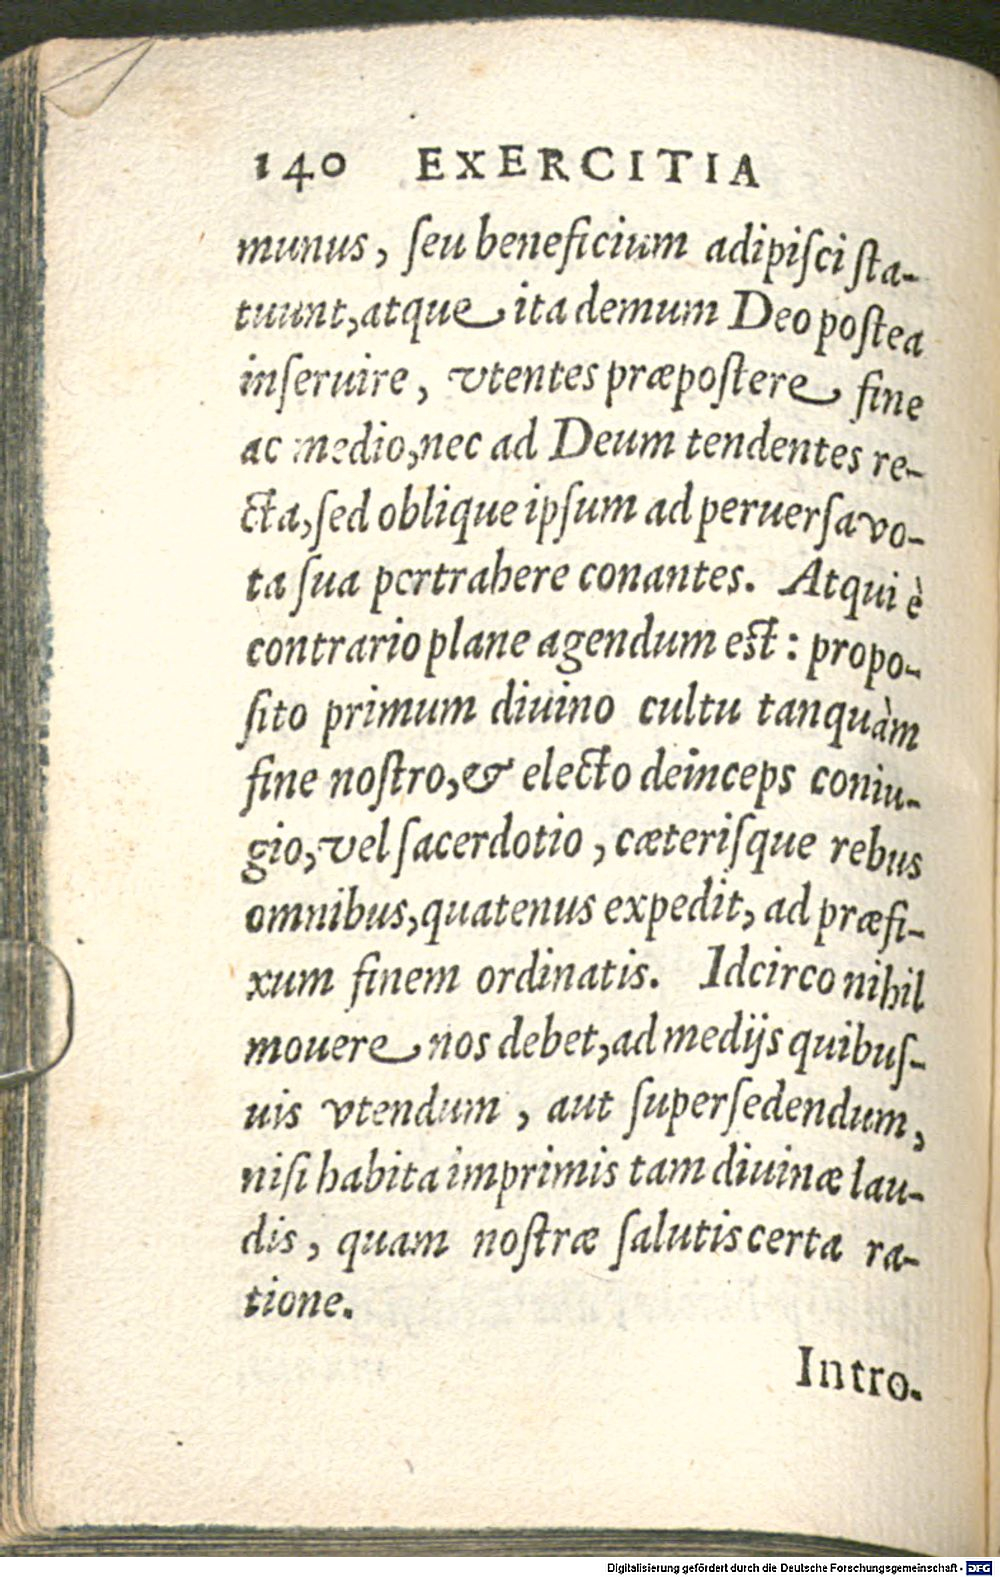 140 EXERCITIA
munus, ſeu beneficium adipiſci ſta-
tuunt, atque ita demum Deo poſtea
inſeruire, vtentes præpoſtere fine
ac medio, nec ad Deum tendentes re-
cta, ſed oblique ipſum ad peruerſa vo-
ta ſua pertrahere conantes. Atqui è
contrario plane agendum eſt: propo-
ſito primum diuino cultu tanquàm
fine noſtro, & electo deinceps coniu-
gio, vel ſacerdotio, cæteriſque rebus
omnibus, quatenus expedit, ad præfi-
xum finem ordinatis. Idcirco nihil
mouere nos debet, ad medijs quibuſ-
uis vtendum, aut ſuperſedendum,
niſi habita imprimis tam diuinæ lau-
dis, quam noſtræ ſalutis certa ra-
tione.
Intro-
Digitalisierung gefördert durch die Deutsche Forschungsgemeinschaft - DFG